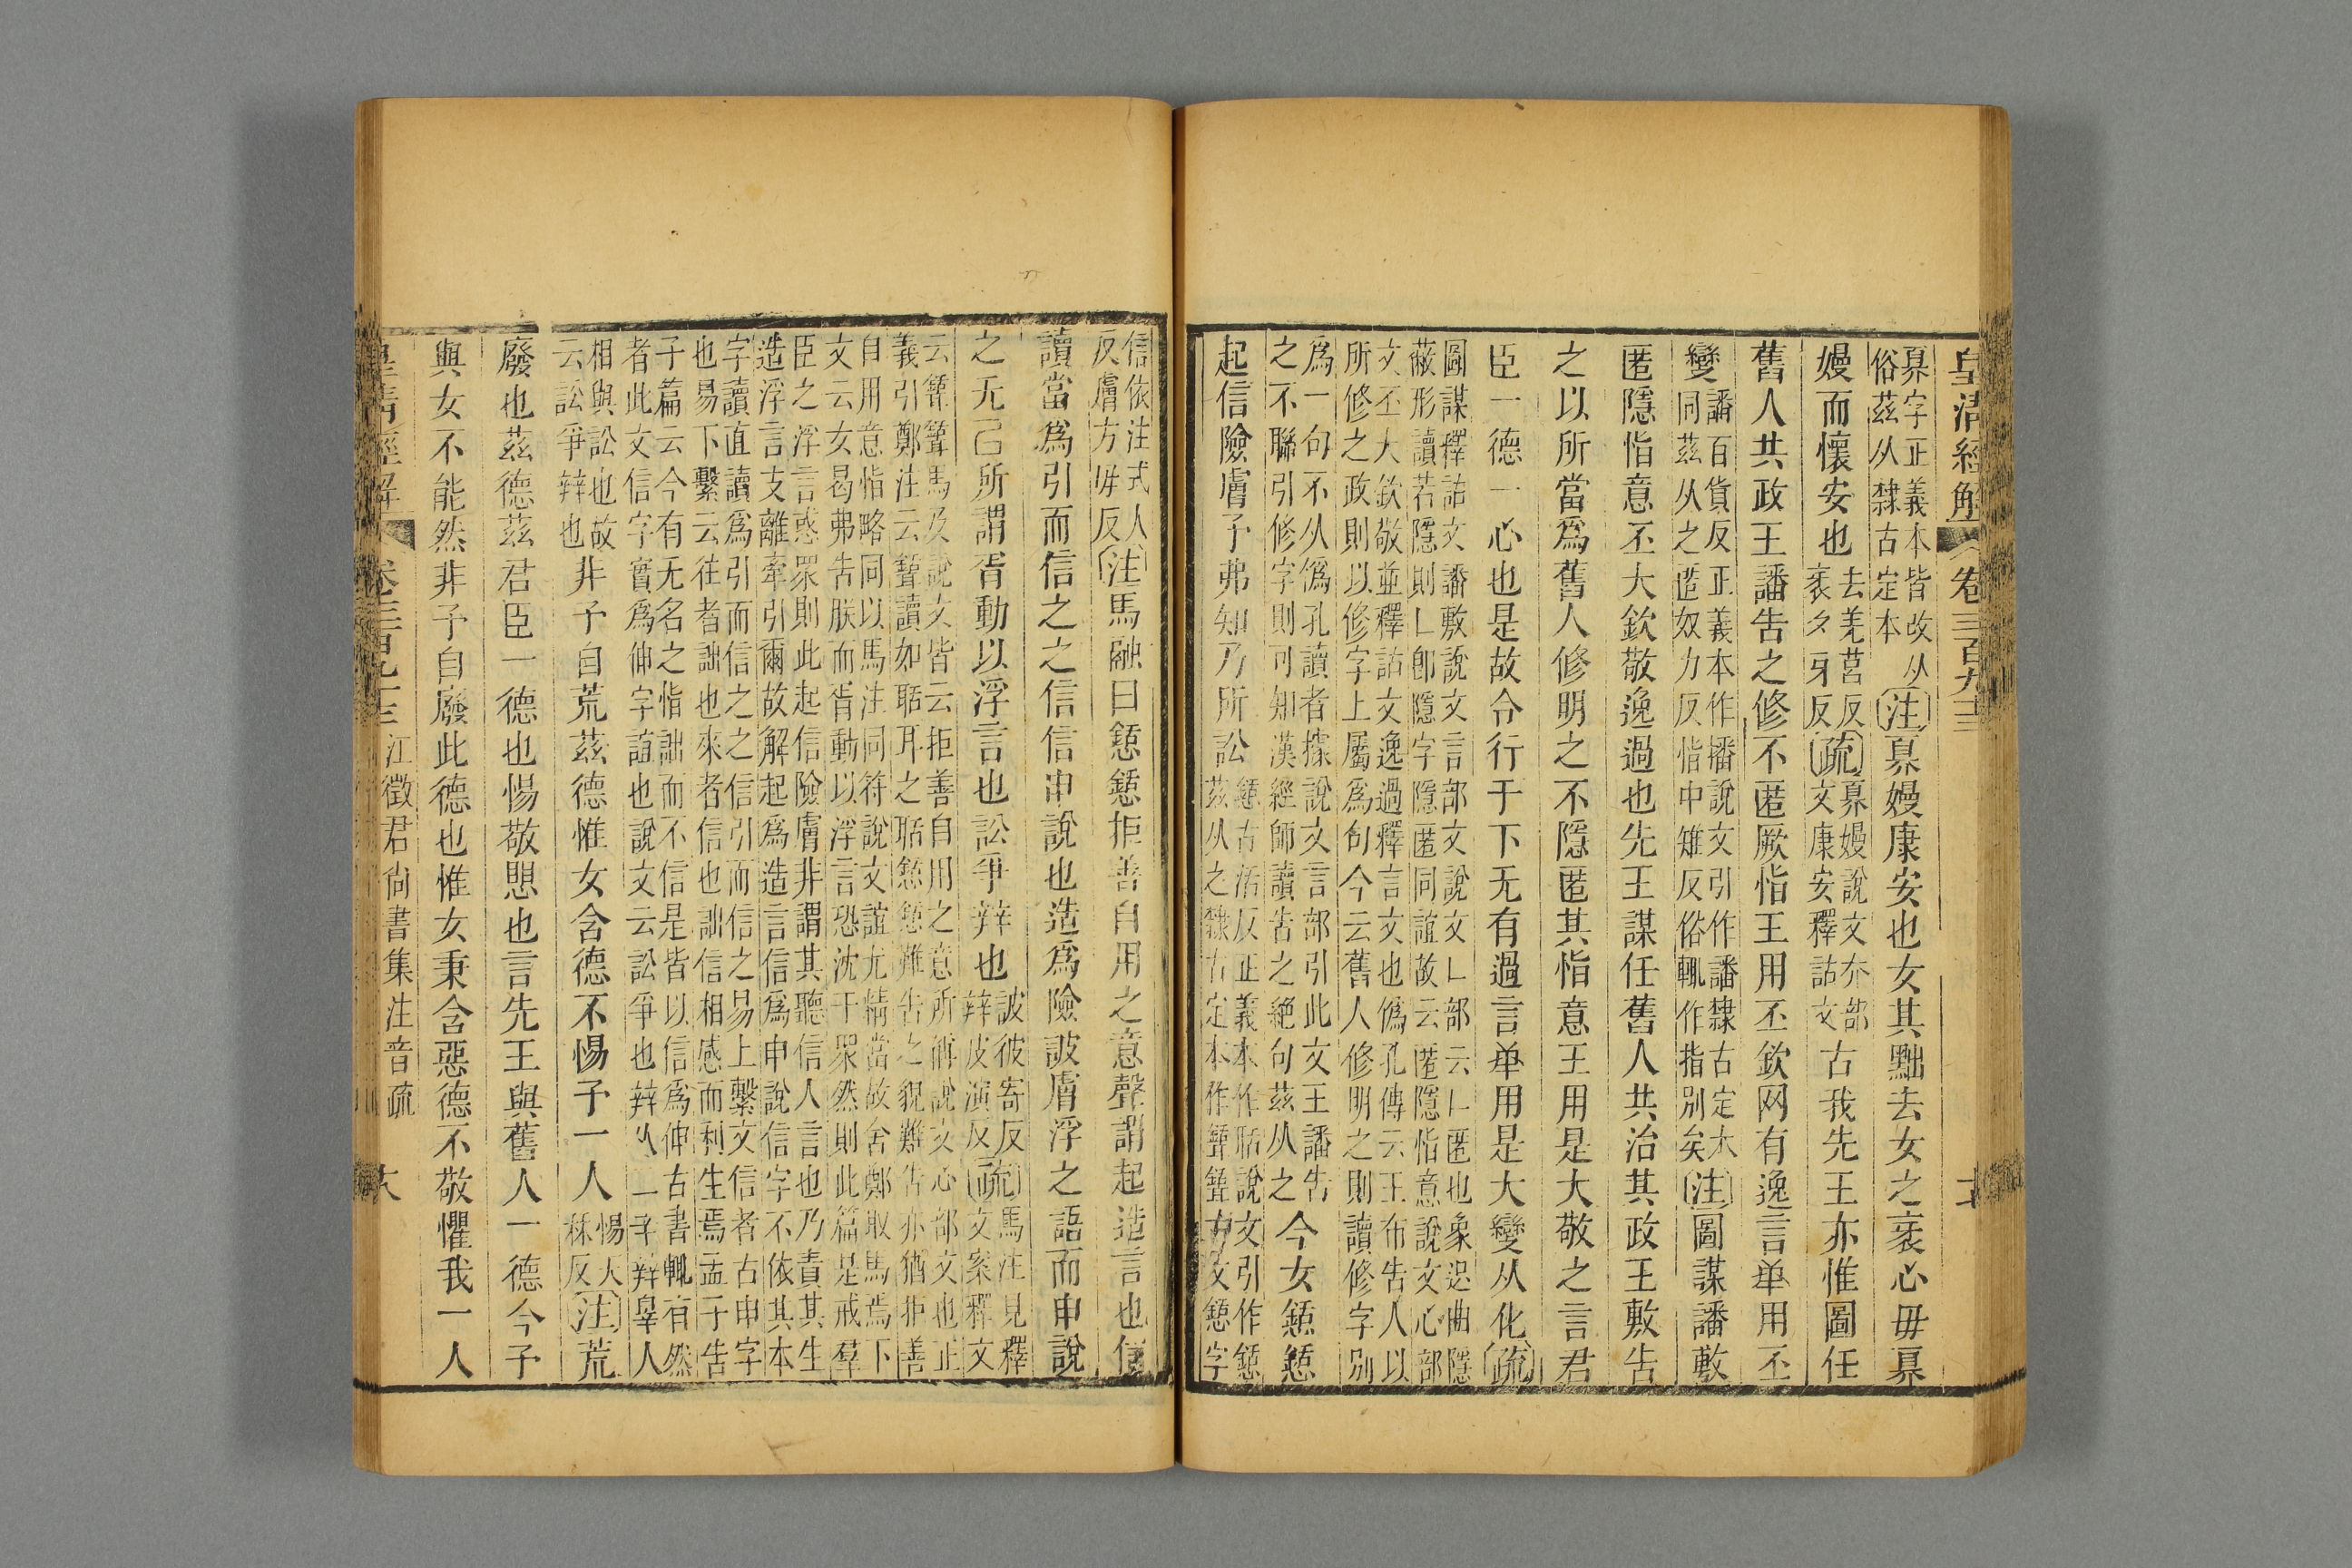 皇清經解 卷三百九十三
奡字正義本皆改从
俗茲从隸古定本
注奡嫚康安也女其黜去女之衺心毋奡
嫚而懷安也
去羌莒反
衺夕牙反
疏
奡嫚說文夰部
文康安釋詁文
古我先王亦惟圖任
舊人共政王譒告之修不匿厥恉王用丕欽网有逸言单用丕
變
譒百貨反正義本作播說文引作譒隸古定本
同茲从之匿奴力反恉中雉反俗輒作指別矣
注圖謀譒敷
匿隱恉意丕大欽敬逸過也先王謀任舊人共治其政王敷告
之以所當爲舊人修明之不隱匿其恉意王用是大敬之言君
臣一德一心也是故令行于下无有過言单用是大變从化疏
圖謀釋詁文譒敷說文言部文說文乚部云乚匿也象迟曲隱
蔽形讀若隱則乚卽隱字隱匿同誼故云匿隱恉意說文心部
文丕大欽敬並釋詁文逸過釋言文也僞孔傳云王布告人以
所修之政則以修字上屬爲句今云舊人修明之則讀修字別
爲一句不从僞孔讀者據說文言部引此文王譒告
之不聯引修字則可知漢經師讀告之絕句茲从之
今女懖懖
起信險膚予弗知乃所訟
懖古活反正義本作聒說文引作懖
茲从之隸古定本作𦗷𦗷古文懖字
信依注式人
反膚方㫄反
注馬融曰懖懖拒善自用之意聲謂起造言也信
讀當爲引而信之之信信申說也造爲險詖膚浮之語而申說
之无己所謂胥動以浮言也訟爭辯也
詖彼寄反
辯皮演反
疏
馬注見釋
文案釋文
云𦗷𦗷馬及說文皆云拒善自用之意所偁說文心部文也正
義引鄭注云𦗷讀如聒耳之聒懖懖難告之貌難告亦猶拒善
自用意恉略同以馬注同符說文誼尤精當故舍鄭取馬焉下
文云女曷弗告朕而胥動以浮言恐沈于眾然則此篇是戒羣
臣之浮言惑眾則此起信險膚非謂其聽信人言也乃責其生
造浮言支離牽引爾故解起爲造言信爲申說信字不依其本
字讀直讀爲引而信之之信引而信之易上繫文信者古申字
也易下繫云往者詘也來者信也詘信相感而利生焉孟子告
子篇云今有无名之恉詘而不信是皆以信爲伸古書輒有然
者此文信字實爲伸字誼也說文云訟爭也辯从䇂䇂辯辠人
相與訟也故
云訟爭辯也
非予自荒茲德惟女含德不惕予一人
惕大
秝反
注荒
廢也茲德茲君臣一德也惕敬愳也言先王與舊人一德今予
與女不能然非予自廢此德也惟女秉含惡德不敬懼我一人
皇清經解 卷三百九十三 江徵君尙書集注音疏 大